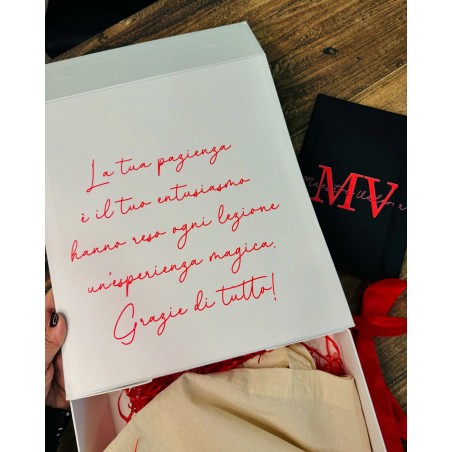 La tua pazienza
è il tuo entusiasmo
hanno reso ogni lezione
un'esperienza magica.
Grazie di tutto!
MV